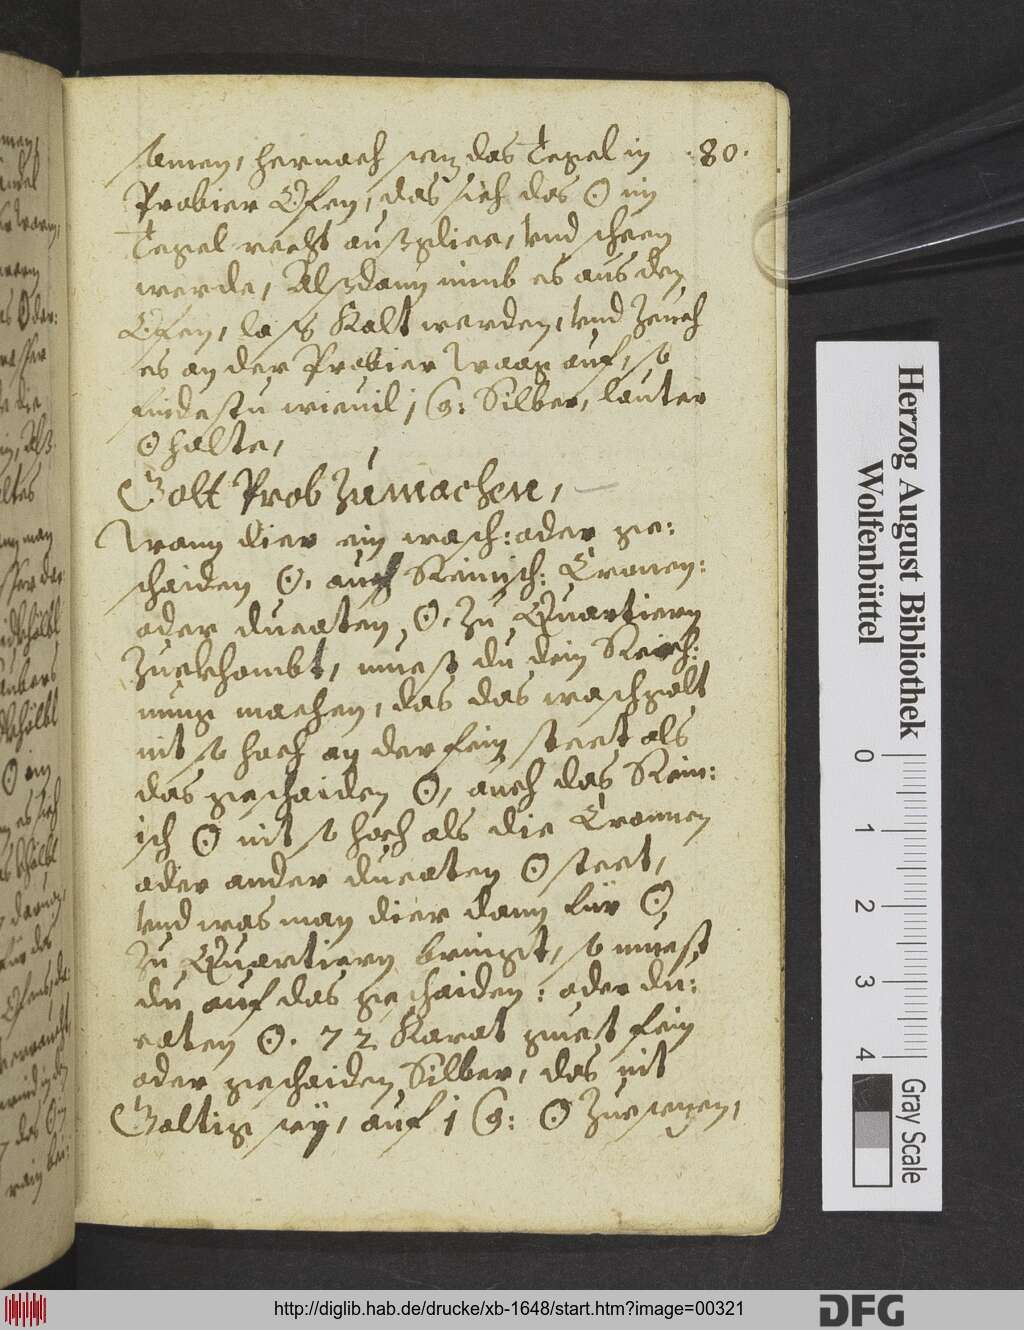 samen, hernach setz das Tegel in .80.
Probier Ofen, das sich das ☉ im
Tegel recht außgliee, vnd scheen
werde, Alßdann nimb es aus den
Ofen, laß Kalt werden, vnd Zeuch
es an der Probier Waag auf, so
findestu wieuil 1 : Silber, lauter
☉ halte,
Golt Prob Zumachen,
Wann dier ein wasch: oder ge:
schaiden ☉. auch Reinisch: Cronen:
oder ducaten ☉. Zu Quartiern
Zuekhombt, muest du dein Raich:
nung machen, das das waschgolt
nit so hoch an der fein steet als
das geschaiden ☉, auch das Rein:
isch ☉ nit so hoch als die Cronnen
oder ander ducaten ☉ steet,
Vnd was man dier dann für ☉
Zu Quartiern bringt, so muest
du auf das geschaiden: oder du:
caten ☉. 72 Karat guet fein
oder geschaiden Silber, das nit
Goltig sey, auf 1 : ☉ Zuesetzen,
Herzog August Bibliothek
Wolfenbüttel
0 1 2 3 4
Gray Scale
http://diglib.hab.de/drucke/xb-1648/start.htm?image=00321
DFG